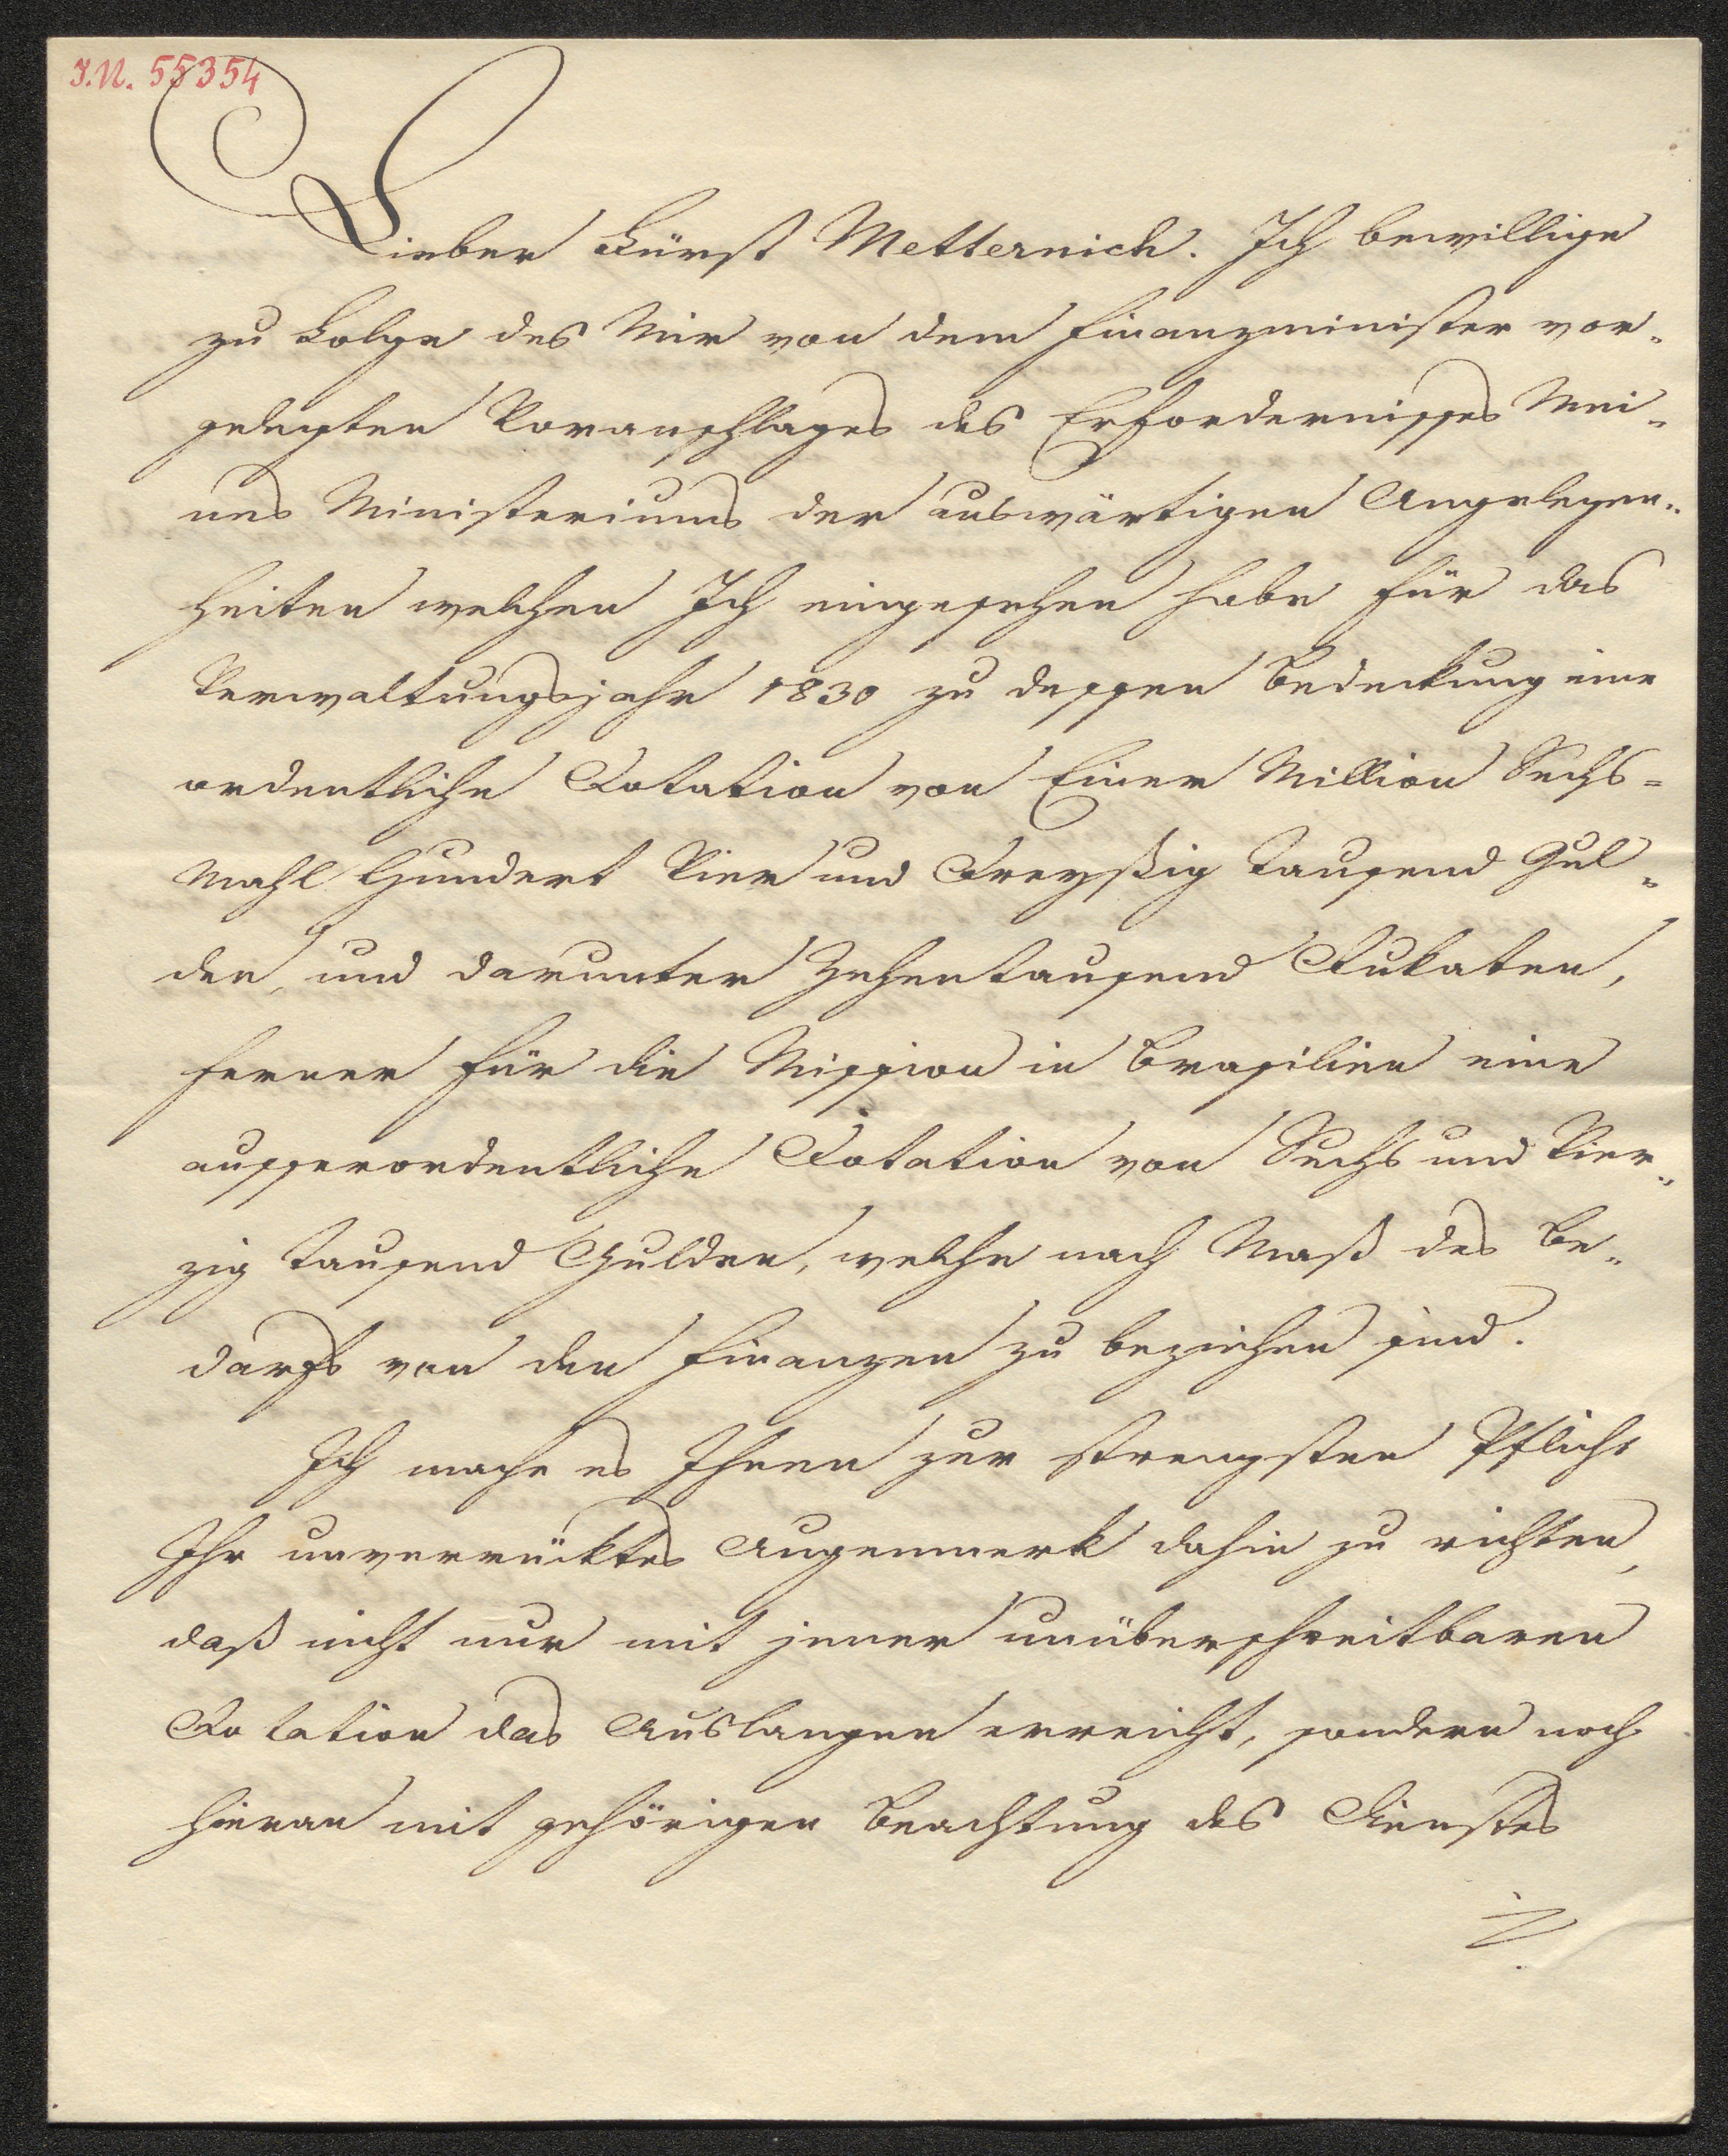 I.N. 55354
Lieber Fürst Metternich. Ich bewillige
zu Folge des Mir von dem Finanzminister vor„
gelegten Voranschlages des Erfordernisses Mei„
nes Ministeriums der auswärtigen Angelegen„
heiten welchen Ich eingesehen habe für das
Verwaltungsjahr 1830 zu dessen Bedeckung eine
ordentliche Dotation von Einer Million Sechs=
Mahl Hundert Vier und Dreyßig Tausend Gul„
den, und darunter Zehentausend Dukaten,
ferner für die Mission in Brasilien eine
ausserordentliche Dotation von Sechs und Vier„
zig Tausend Gulden, welche nach Maß des Be„
darfs von den Finanzen zu beziehen sind.
Ich mache es Ihnen zur strengsten Pflicht
Ihr unverrücktes Augenmerk dahin zu richten,
daß nicht nur mit jener unüberschreitbaren
Dotation das Auslangen erreicht, sondern noch
hieran mit gehöriger Beachtung des Dienstes